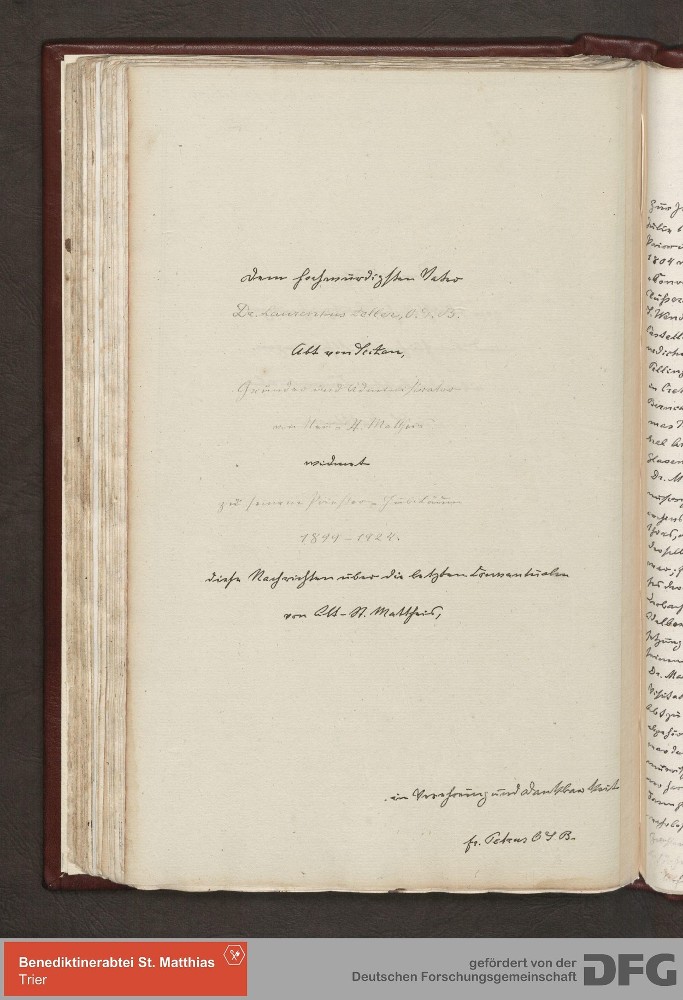 Dem hochwürdigsten Vater
Dr. Laurentius Zeller, O. S. B.
Abt von Seckau,
Gründer und Administrator
von Neu-St. Mattheis
widmet
zu seinem Priester-Jubiläum
1899-1924.
diese Nachrichten über die letzten Conventualen
von Alt-St. Mattheis,
in Verehrung und Dankbarkeit
fr. Petrus O S B.
Zur
1804
Dr. M
Dr. Ma
Benediktinerabtei St. Matthias
Trier
gefördert von der
Deutschen Forschungsgemeinschaft
DFG